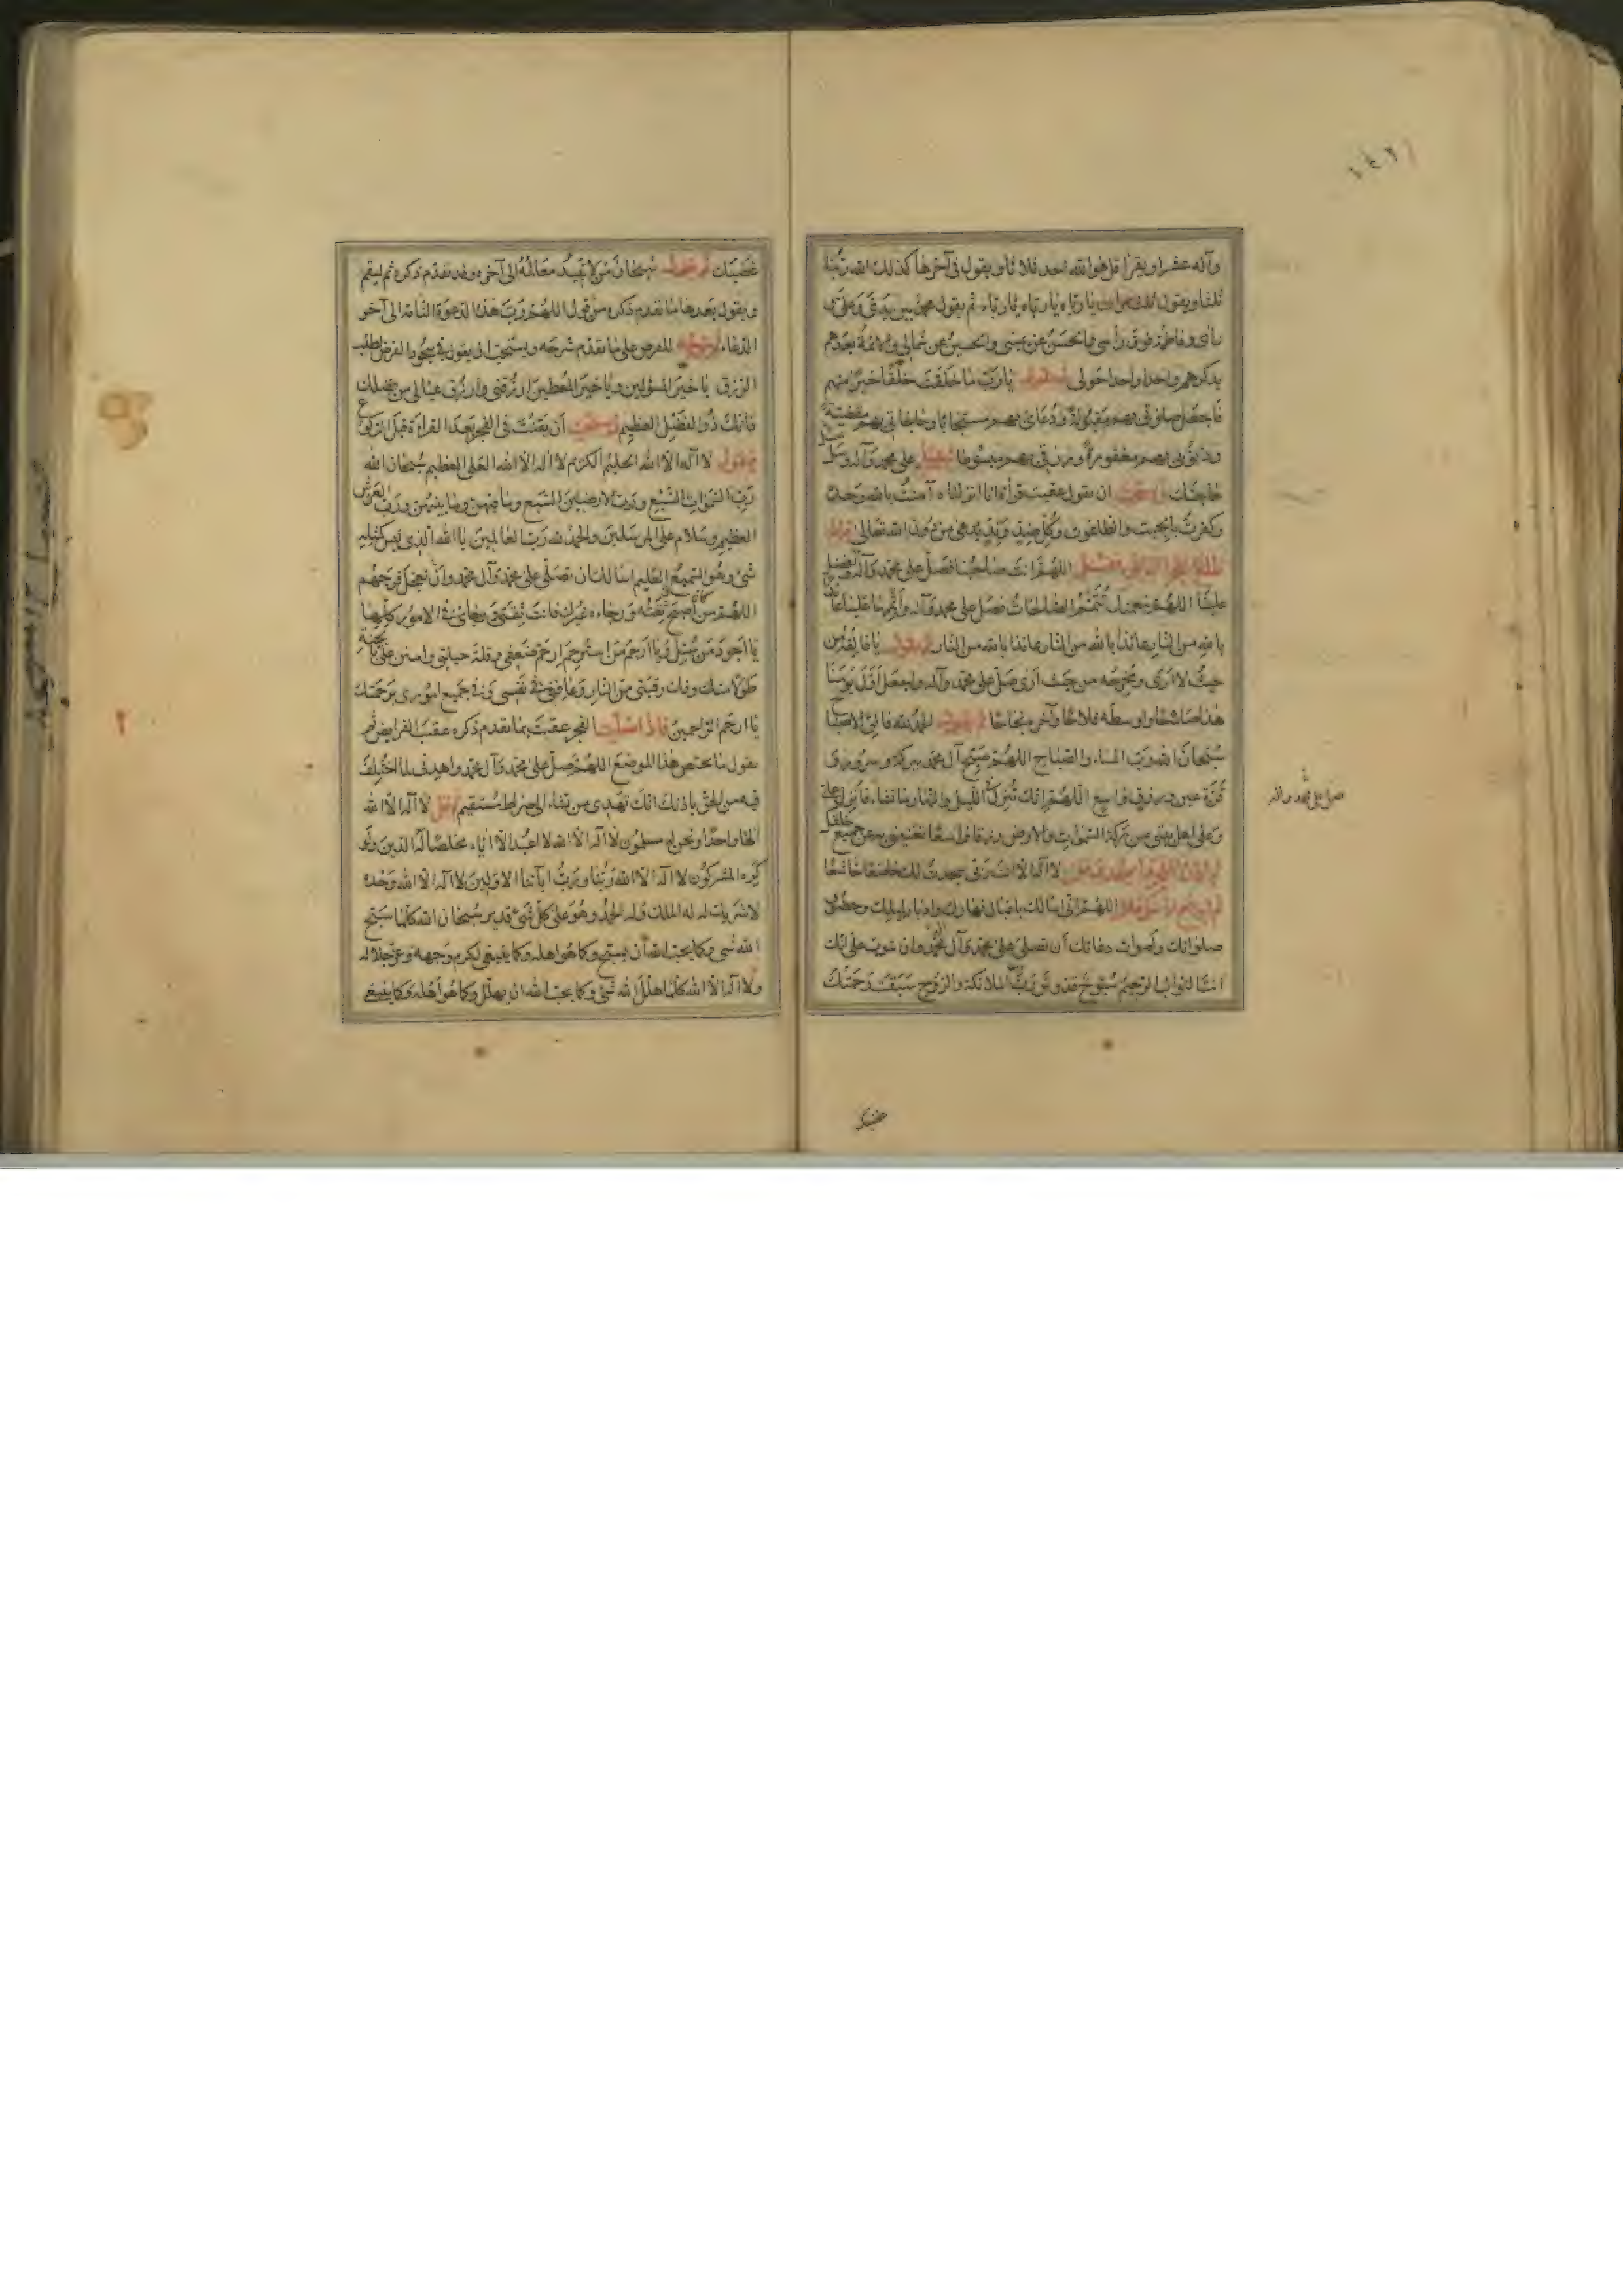 وآله عشرا ويقرأ قل هو الله احد ثلاثا ويقول في آخرها كذلك الله ربنا
ثلثا ويقول ثلث مرات يا رباه يا رباه يا رباه ثم يقول محمد بين يدي وعلي
ورائي وفاطمة فوق رأسي والحسن عن يميني والحسين عن شمالي والائمة بعدهم
يذكرهم واحدا واحدا حولي ثم يقول يا رب ما خلقت خلقا خيرا منهم
فاجعل صلوتي بهم مقبولة ودعائي بهم مستجابا وحاجاتي بهم مقضية
وذنوبي بهم مغفورة ورزقي بهم مبسوطا ثم تصلي على محمد وآله وتسل
حاجتك ان يقول عقيب قرأة انا انزلناه آمنت بالله وحده
وكفرت بالجبت والطاغوت وكل ضد وند يدعى من دون الله تعالى
اللهم انت صاحبنا فصل على محمد وآله وافضل
علينا اللهم بنعمتك تتم الصالحات فصل على محمد وآله واتمها علينا عائذا
بالله من النار عائذا بالله من النار عائذا بالله من النار ثم يقول يا فالقه من
حيث لا ارى ومخرجه من حيث ارى صل على محمد وآله واجعل اول يومنا
هذا صلاحا واوسطه فلاحا وآخره نجاحا الحمد لله فالق الاصباح
سبحان الله رب المساء والصباح اللهم صبح آل محمد ببركة وسرور و
قرة عين ورزق واسع اللهم انك تنزل في الليل والنهار ما تشاء فانزل علي
وعلى اهل بيتي من بركة السموات والارض رزقا واسعا تغنيني به عن جميع خلقك
لا اله الا انت ربي سجدت لك خاضعا خاشعا
اللهم اني اسالك باقبال نهارك وادبار ليلك وحضور
صلواتك واصوات دعاتك ان تصلي على محمد وآل محمد وان تتوب علي انك
انت التواب الرحيم سبوح قدوس رب الملائكة والروح سبقت رحمتك
صل على محمد وآله
غضبك
غضبك ثم يقول سبحان من لا تبيد معالمه الى آخره وقد تقدم ذكره ثم ليقم
ويقول بعدها ما تقدم ذكره من قول اللهم رب هذه الدعوة التامة الى آخر
الدعاء للفرض على ما تقدم شرحه ويستحب ان يقول في سجود الفرض لطلب
الرزق يا خير المسؤلين ويا خير المعطين ارزقني وارزق عيالي من فضلك
فانك ذو الفضل العظيم ان يقنت في الفجر بعد القراءة قبل الركوع
فيقول لا اله الا الله الحليم الكريم لا اله الا الله العلي العظيم سبحان الله
رب السموات السبع ورب الارضين السبع وما فيهن وما بينهن ورب العرش
العظيم وسلام على المرسلين والحمد لله رب العالمين يا الله الذي ليس كمثله
شئ وهو السميع العليم اسالك ان تصلي على محمد وآل محمد وان تعجل فرجهم
اللهم من كان اصبح ثقته ورجاءه غيرك فانت ثقتي ورجائي في الامور كلها
يا اجود من سئل ويا ارحم من استرحم ارحم ضعفي وقلة حيلتي وامنن علي بالجنة
طولا منك وفك رقبتي من النار وعافني في نفسي وفي جميع اموري برحمتك
يا ارحم الراحمين فاذا سلمت الفجر عقبت بما تقدم ذكره عقيب الفرايض ثم
يقول ما يختص هذا الموضع اللهم صل على محمد وآل محمد واهدني لما اختلف
فيه من الحق باذنك انك تهدي من تشاء الى صراط مستقيم وقل لا اله الا الله
الها واحدا ونحن له مسلمون لا اله الا الله لا نعبد الا اياه مخلصا له الدين ولو
كره المشركون لا اله الا الله ربنا ورب آبائنا الاولين لا اله الا الله وحده
لا شريك له له الملك وله الحمد وهو على كل شئ قدير سبحان الله كلما سبح
الله شئ وكما يحب الله ان يسبح وكما هو اهله وكما ينبغي لكرم وجهه وعز جلاله
ولا اله الا الله كلما هلل الله شئ وكما يحب الله ان يهلل وكما هو اهله وكما ينبغي